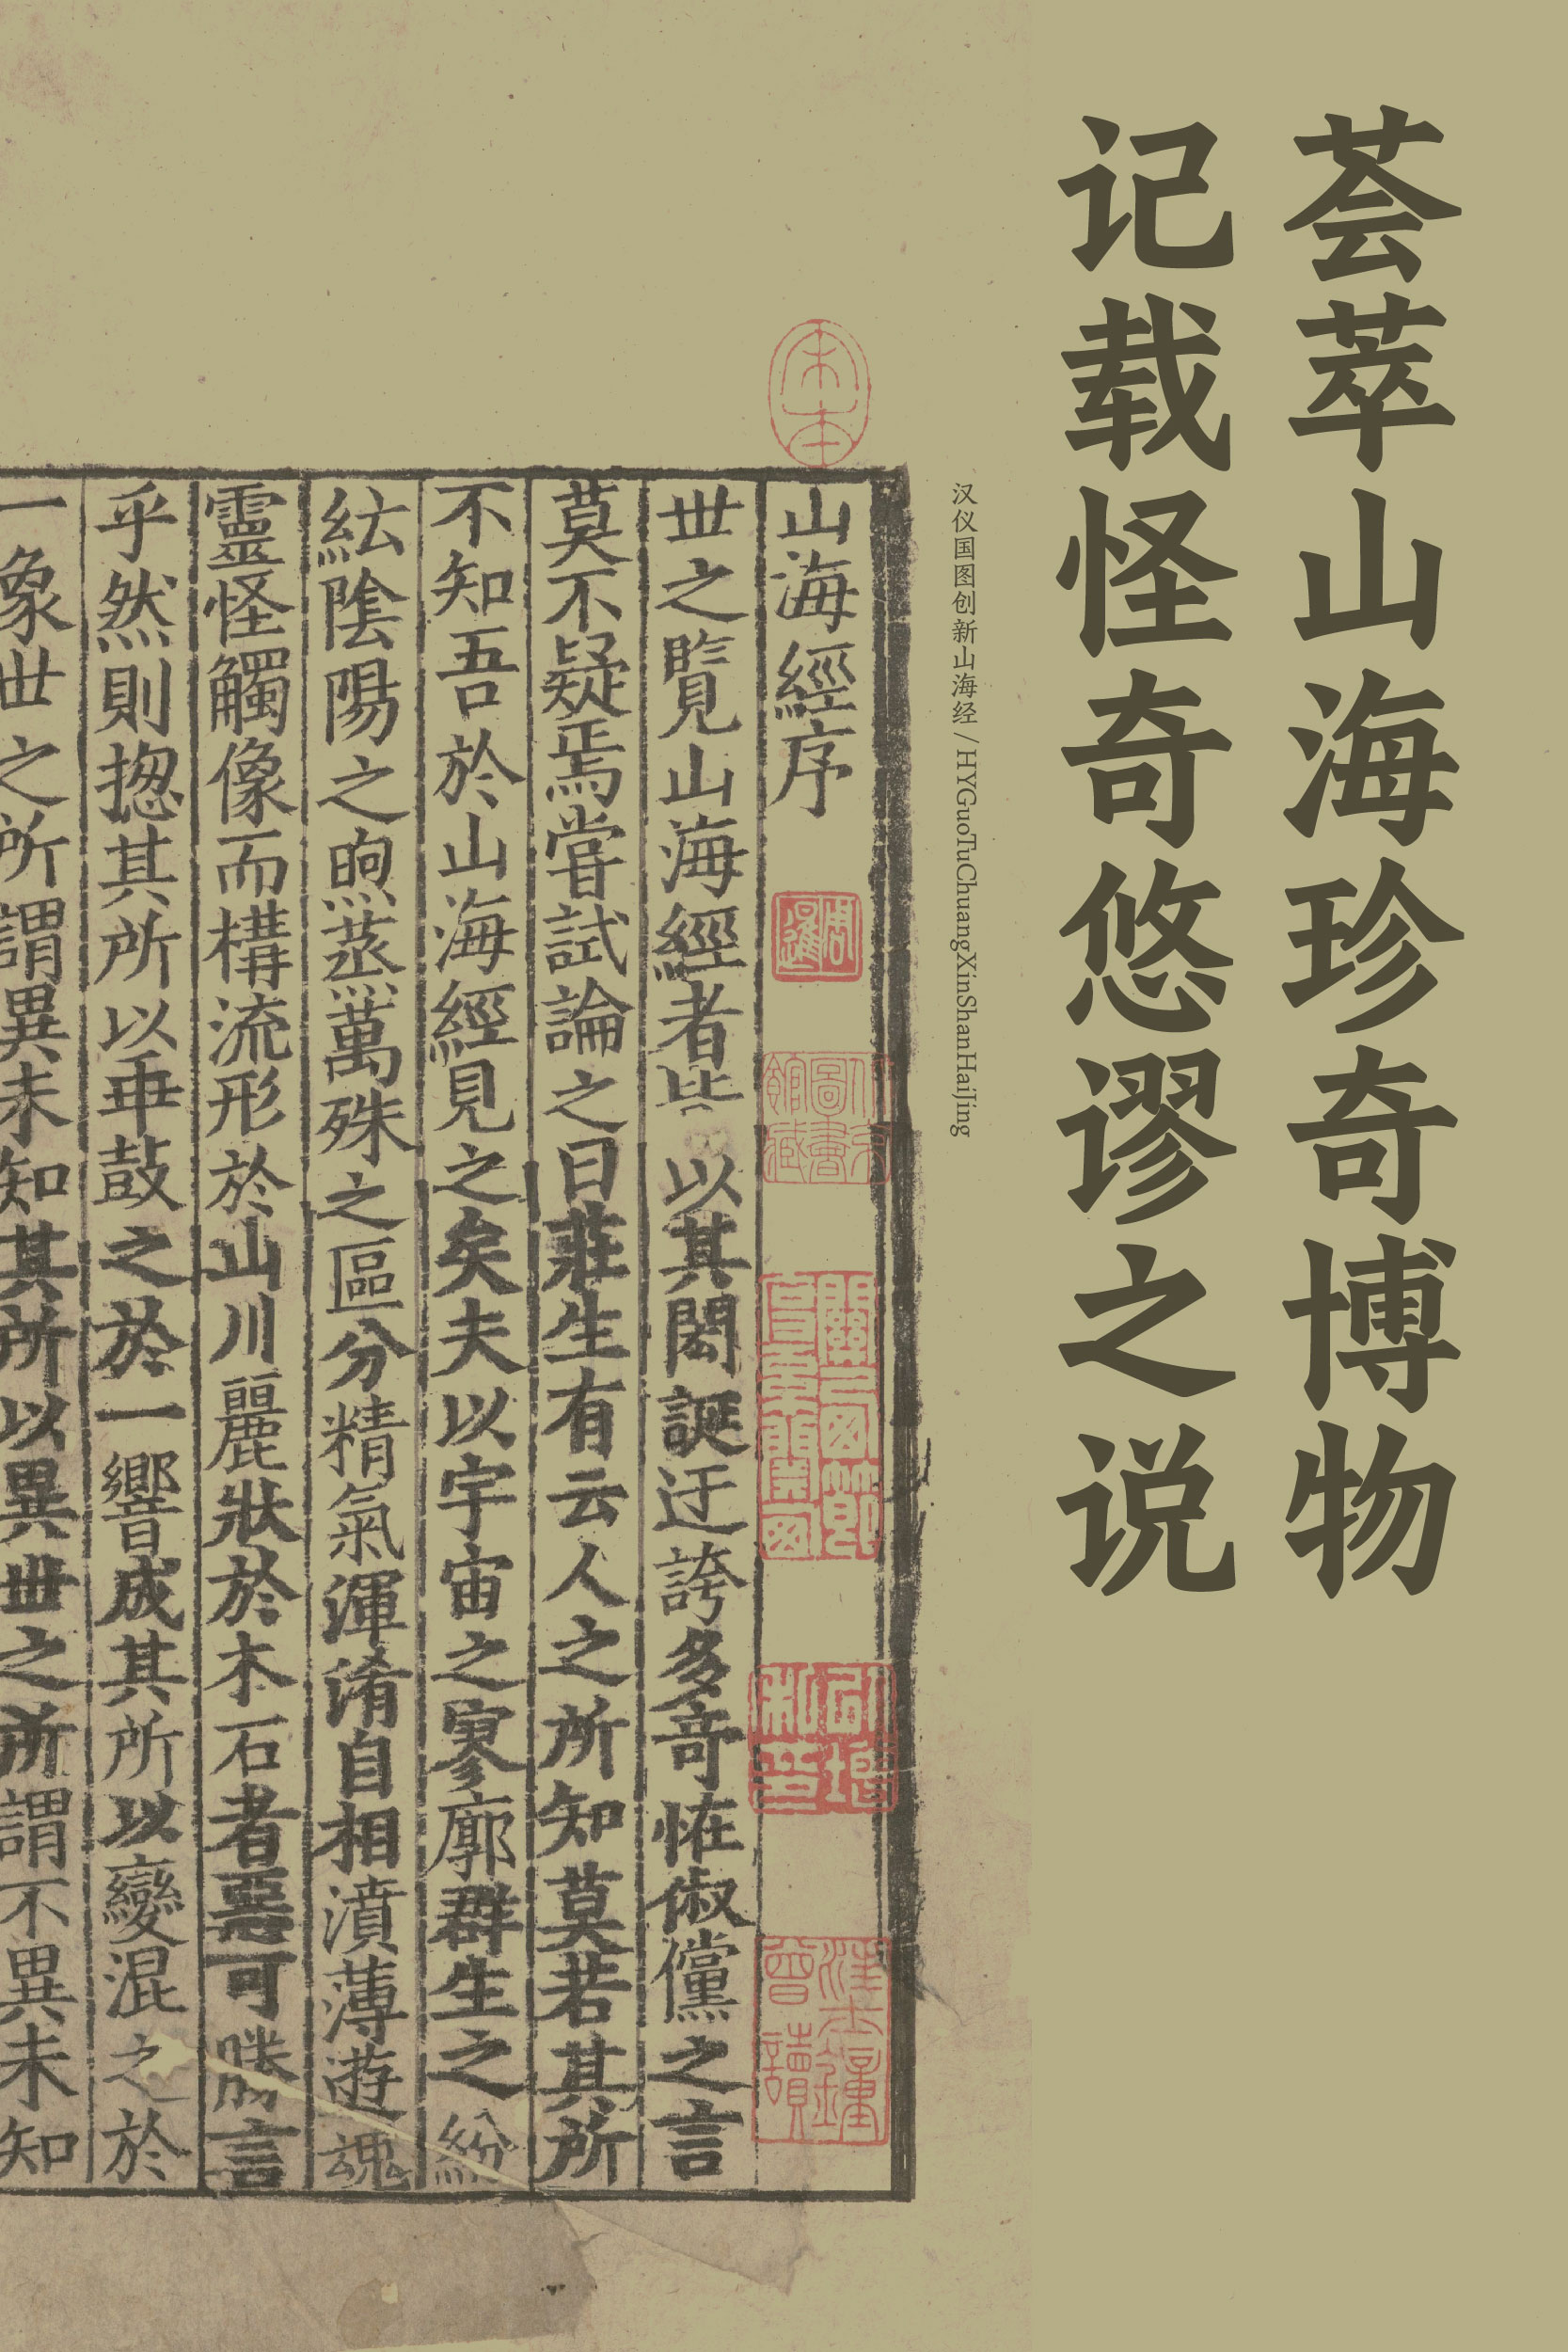 荟萃山海珍奇博物
记载怪奇悠谬之说
汉仪国图创新山海经 / HYGuoTuChuangXinShanHaiJing
山海經序
世之覽山海經者皆以其閎誕迂誇多奇怪俶儻之言
莫不疑焉嘗試論之曰莊生有云人之所知莫若其所
不知吾於山海經見之矣夫以宇宙之寥廓群生之紛
紜陰陽之煦蒸萬殊之區分精氣渾淆自相濆薄遊魂
靈怪觸像而構流形於山川麗狀於木石者惡可勝言
乎然則揔其所以乖鼓之於一響成其所以變混之於
一象世之所謂異未知其所以異世之所謂不異未知